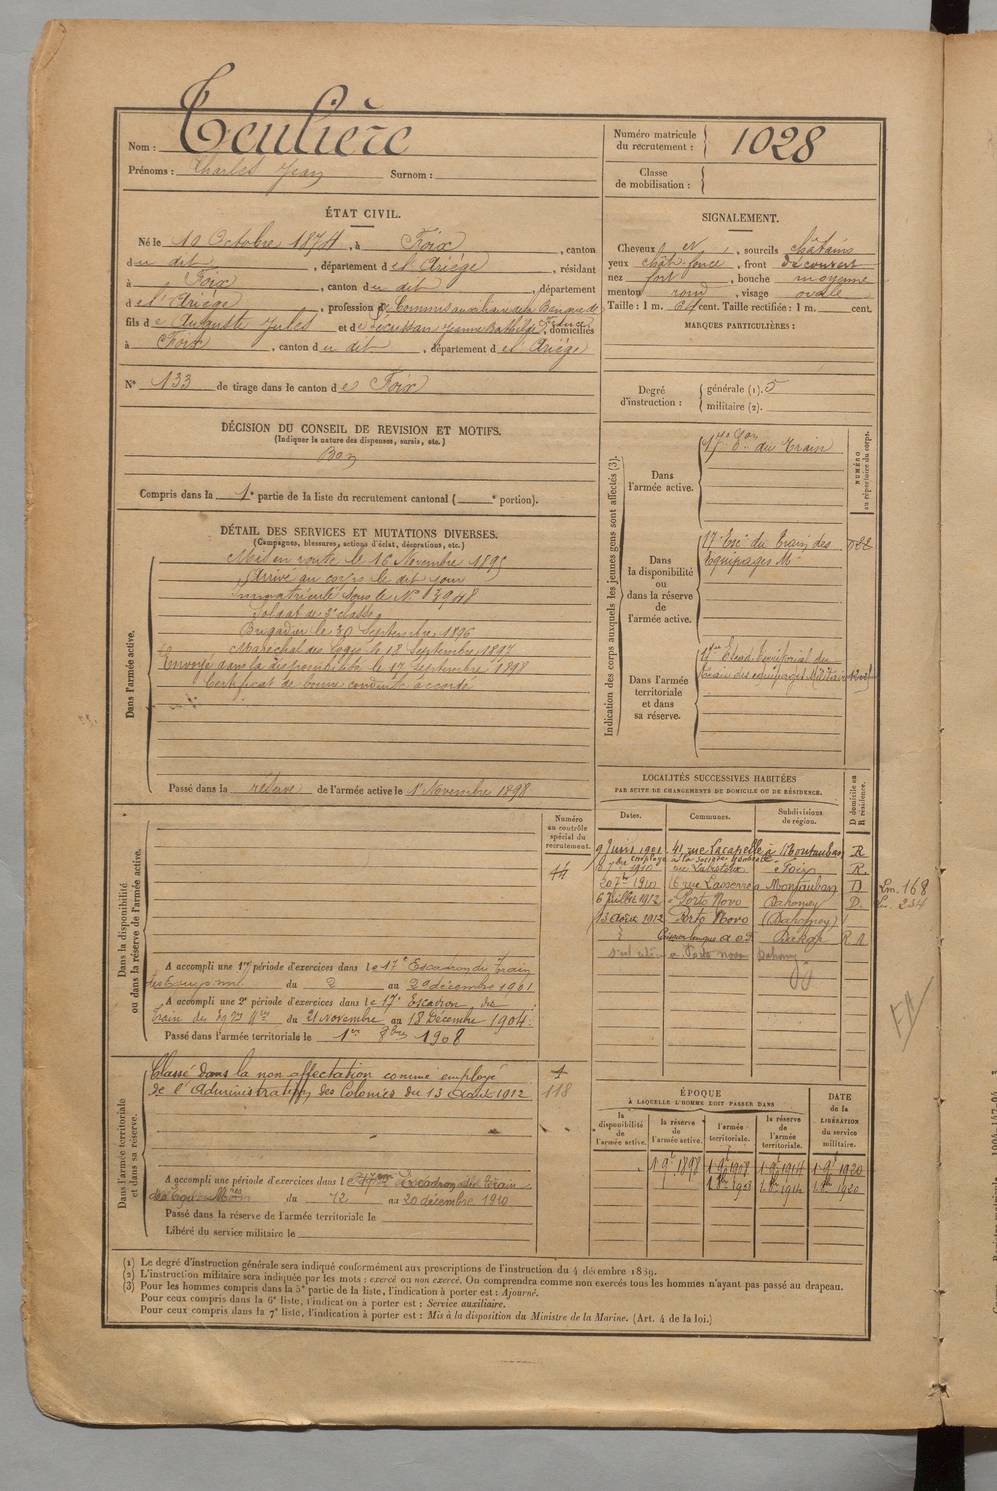 Nom : Teulière
Prénoms : Charles Jean Surnom :
Numéro matricule du recrutement : 1028
Classe de mobilisation :
ÉTAT CIVIL.
Né le 10 Octobre 1874, à Foix, canton
du dit, département de l'Ariège, résidant
à Foix, canton du dit, département
de l'Ariège, profession de Commis auxiliaire de la Banque de France
fils de Auguste Jules et de Lecussan Jeanne Bathilde, domiciliés
à Foix, canton du dit, département de l'Ariège
N° 133 de tirage dans le canton de Foix
SIGNALEMENT.
Cheveux, sourcils châtains
yeux chât. foncé, front découvert
nez fort, bouche moyenne
menton rond, visage ovale
Taille : 1 m. 64 cent. Taille rectifiée : 1 m. cent.
MARQUES PARTICULIÈRES :
Degré d'instruction : générale (1). 5
militaire (2).
DÉCISION DU CONSEIL DE REVISION ET MOTIFS.
(Indiquer la nature des dispenses, sursis, etc.)
Bon
Compris dans la 1e partie de la liste du recrutement cantonal ( e portion).
DÉTAIL DES SERVICES ET MUTATIONS DIVERSES.
(Campagnes, blessures, actions d'éclat, décorations, etc.)
Dans l'armée active.
Mis en route le 16 Novembre 1895
Arrivé au corps le dit jour
Immatriculé sous le N° 3948
Soldat de 2e classe
Brigadier le 30 Septembre 1896
Maréchal des logis le 18 Septembre 1897
Envoyé dans la disponibilité le 17 Septembre 1898
Certificat de bonne conduite accordé
Passé dans la réserve de l'armée active le 1er Novembre 1898
Indication des corps auxquels les jeunes gens sont affectés (3).
NUMÉRO au répertoire du corps.
Dans l'armée active.
17e Eon du Train
Dans la disponibilité ou dans la réserve de l'armée active.
17e Esc du Train des
Equipages Mre
Dans l'armée territoriale et dans sa réserve.
17e Escad. territorial du
train des équipages Militaires
LOCALITÉS SUCCESSIVES HABITÉES
PAR SUITE DE CHANGEMENTS DE DOMICILE OU DE RÉSIDENCE.
Dates. Communes. Subdivisions de région. D domicile ou R résidence.
9 Juin 1901 41 rue Lacapelle à Montauban R
employé à la Société Générale
8 7bre 1910 Foix R.
20 7bre 1910 16 rue Lasserre à Montauban D
6 Juillet 1912 Porto Novo Dahomey D.
13 août 1912 Porto Novo (Dahomey)
Dakar R
Porto novo Dahomey
Lm. 168
234
Dans la disponibilité ou dans la réserve de l'armée active.
Numéro au contrôle spécial du recrutement.
44
A accompli une 1re période d'exercices dans le 17e Escadron du Train
des Equip. mil. du 2 au 29 décembre 1901
A accompli une 2e période d'exercices dans le 17e Escadron du
Train des Eq. Mres du 21 Novembre au 18 Décembre 1904.
Passé dans l'armée territoriale le 1er 8bre 1908
Dans l'armée territoriale et dans sa réserve.
Classé dans la non affectation comme employé
de l'Administration des Colonies du 13 août 1912
118
A accompli une période d'exercices dans le 17e Escadron du Train
des Equip. Mres du 12 au 20 décembre 1910
Passé dans la réserve de l'armée territoriale le
Libéré du service militaire le
ÉPOQUE
À LAQUELLE L'HOMME DOIT PASSER DANS
DATE de la LIBÉRATION du service militaire.
la disponibilité de l'armée active. la réserve de l'armée active. l'armée territoriale. la réserve de l'armée territoriale.
1 9e 1898 1 9e 1908 1 9e 1914 1 9e 1920
1 8bre 1908 1 8bre 1914 1 8bre 1920
(1) Le degré d'instruction générale sera indiqué conformément aux prescriptions de l'instruction du 4 décembre 1889.
(2) L'instruction militaire sera indiquée par les mots : exercé ou non exercé. On comprendra comme non exercés tous les hommes n'ayant pas passé au drapeau.
(3) Pour les hommes compris dans la 5e partie de la liste, l'indication à porter est : Ajourné.
Pour ceux compris dans la 6e liste, l'indication à porter est : Service auxiliaire.
Pour ceux compris dans la 7e liste, l'indication à porter est : Mis à la disposition du Ministre de la Marine. (Art. 4 de la loi.)